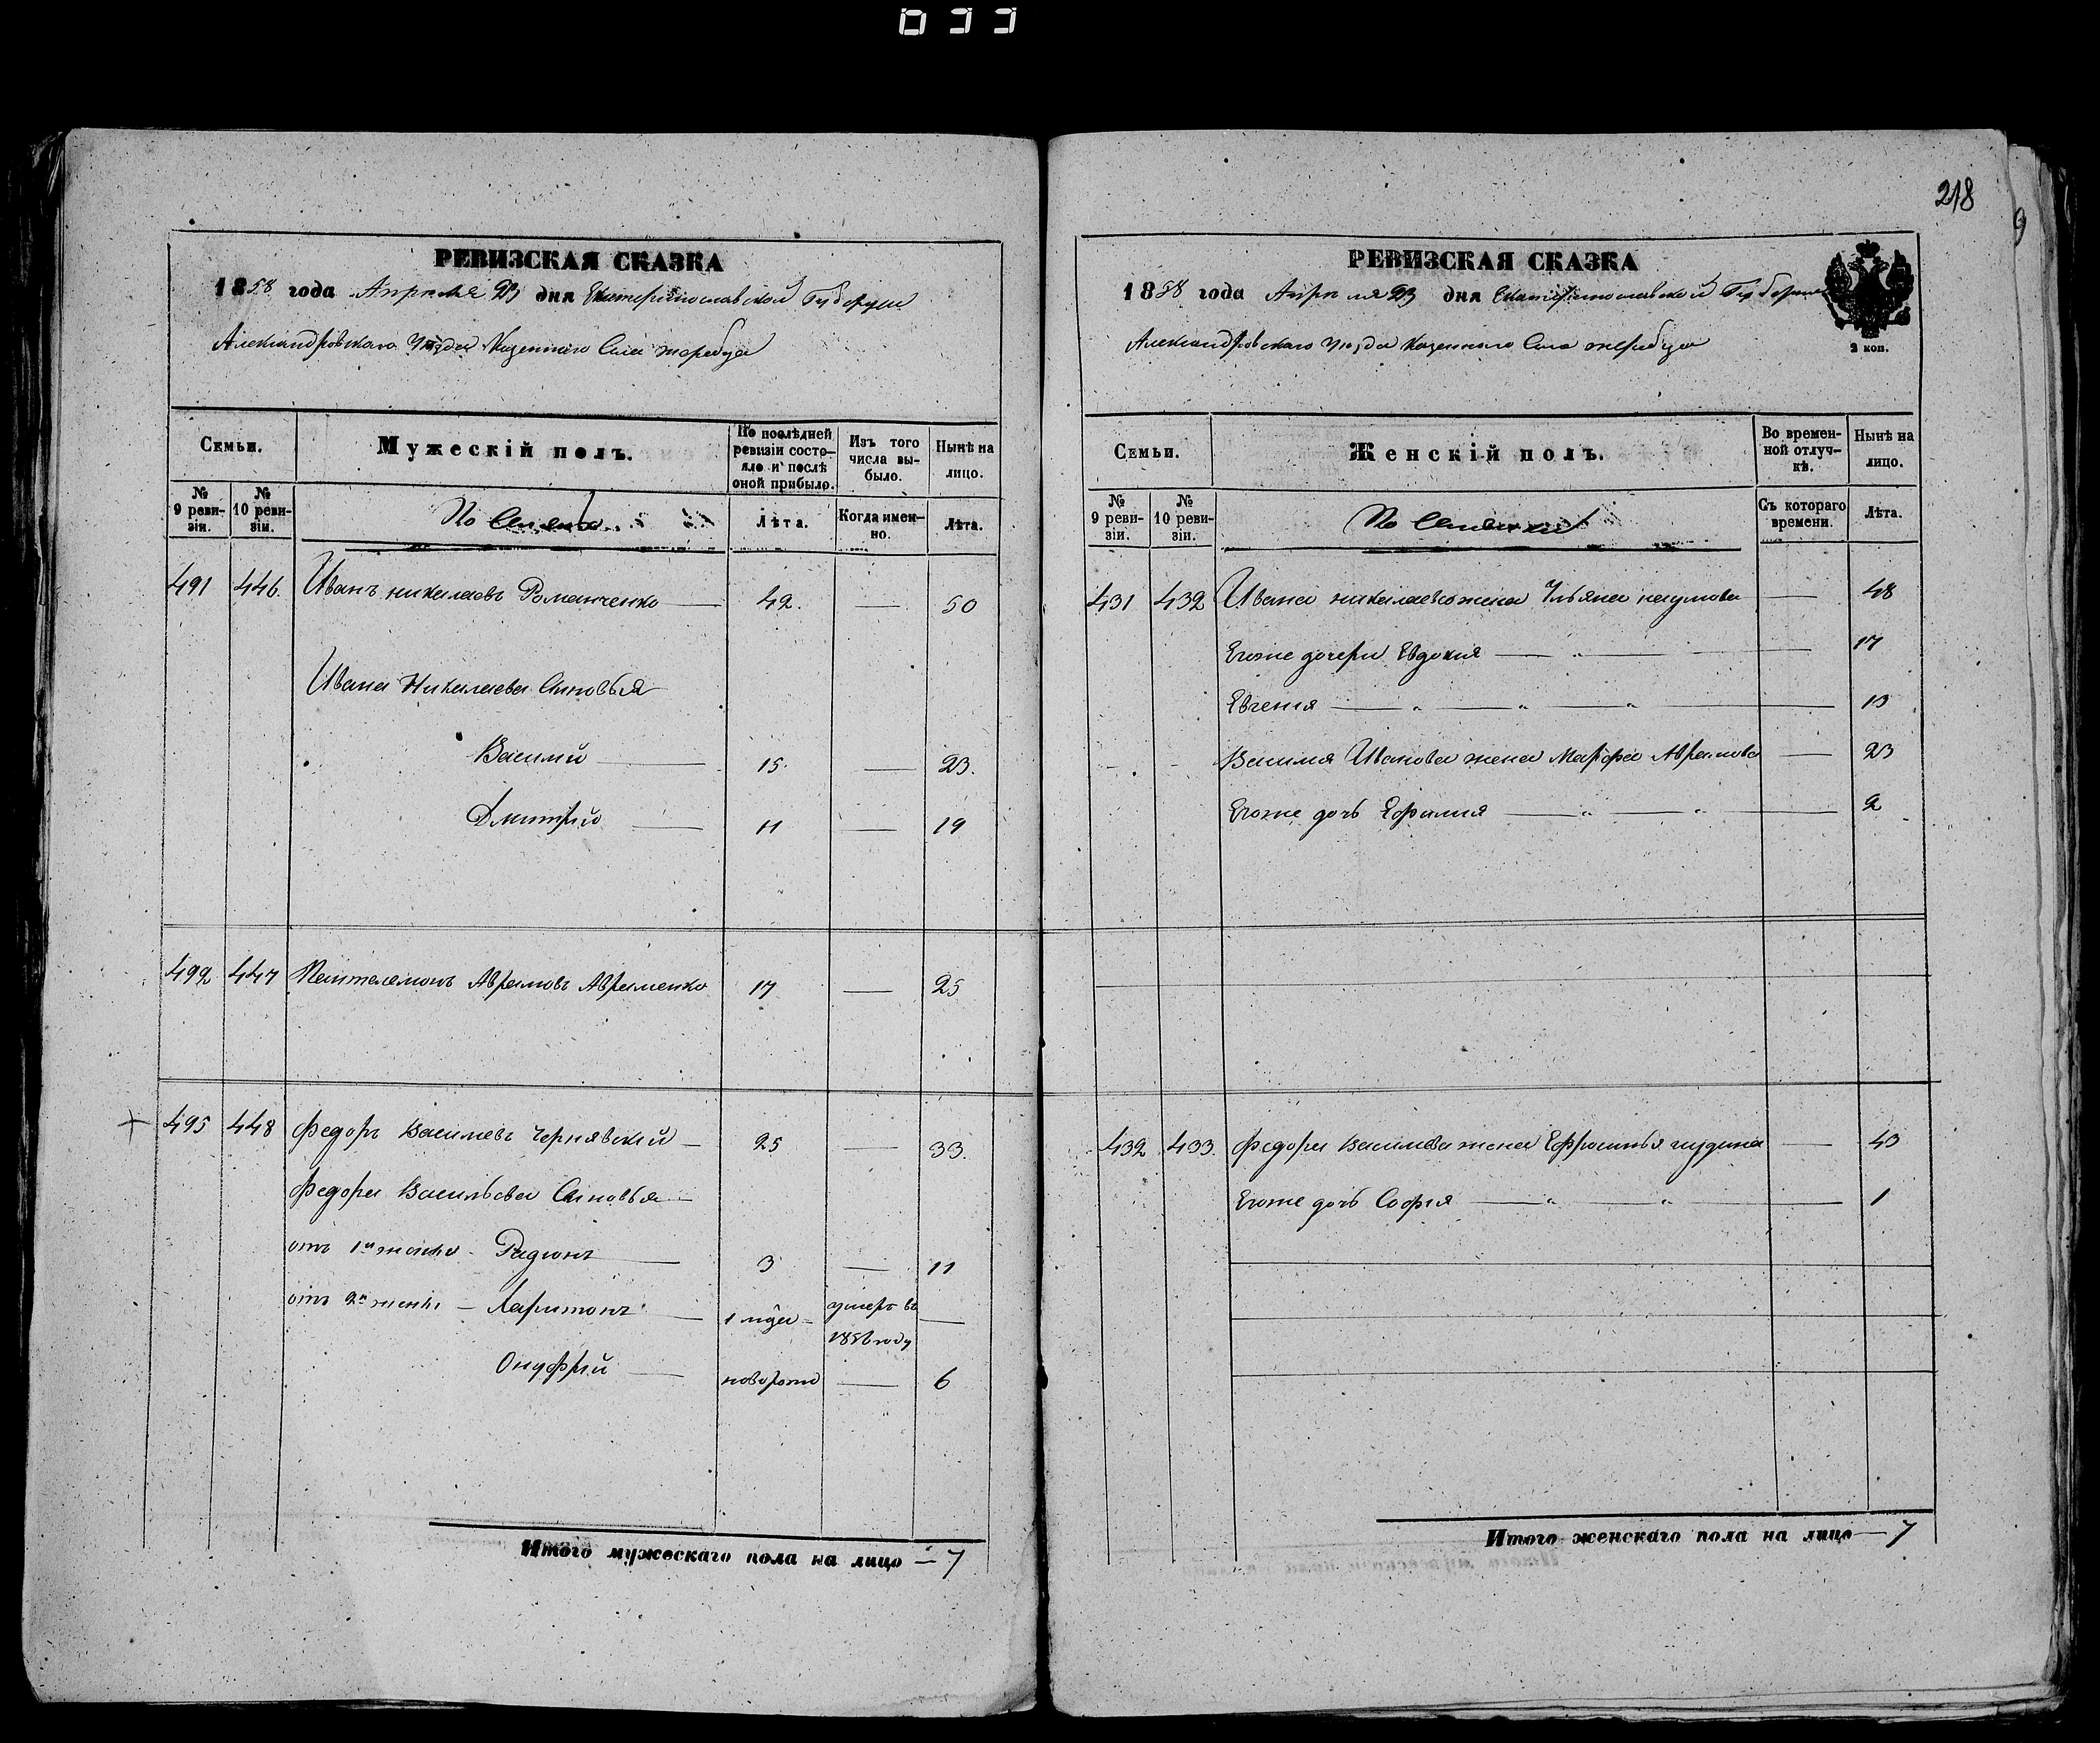 033
218
9
РЕВИЗСКАЯ СКАЗКА
1858 года Апреля 23 дня Екатеринославской Губернии
Александровского Уезда Казенного Села жеребца
Семьи.
Мужескій полъ.
По послѣдней ревизіи состояло и послѣ оной прибыло.
Изъ того числа выбыло.
Нынѣ на лицо.
№ 9 ревизіи.
№ 10 ревизіи.
Лѣта.
Когда именно.
Лѣта.
491 446. Иванъ николаевъ Романченко 42. 50
Ивана Николаева Сыновья
Василий 15. 23.
Дмитрий 11 19
492 447 Пантелемонъ Аврамовъ Авраменко 17 25
495 448 Федоръ Василевъ Чернявский 25 33.
Федора Васильева Сыновья
отъ 1й жены Радионъ 3 11
отъ 2й жены Харитонъ 1 умеръ въ
году
Онуфрий новорож 6
Итого мужескаго пола на лицо 7
РЕВИЗСКАЯ СКАЗКА
1858 года Апреля 23 дня Екатеринославской Губернии
Александровского Уезда Казенного Села жеребца
2 коп.
Семьи.
Женскій полъ.
Во временной отлучкѣ.
Нынѣ на лицо.
№ 9 ревизіи.
№ 10 ревизіи.
Съ котораго времени.
Лѣта.
431 432 Ивана николаева жена Ульяна наумова 48
Егоже дочери Евдокия 17
Евгения 13
Василия Иванова жена Марфа Аврамова 23
Егоже дочь Ефимия 2
432 433. Федора Василева жена Ефросинья 43
Егоже дочь София 1
Итого женскаго пола на лицо 7